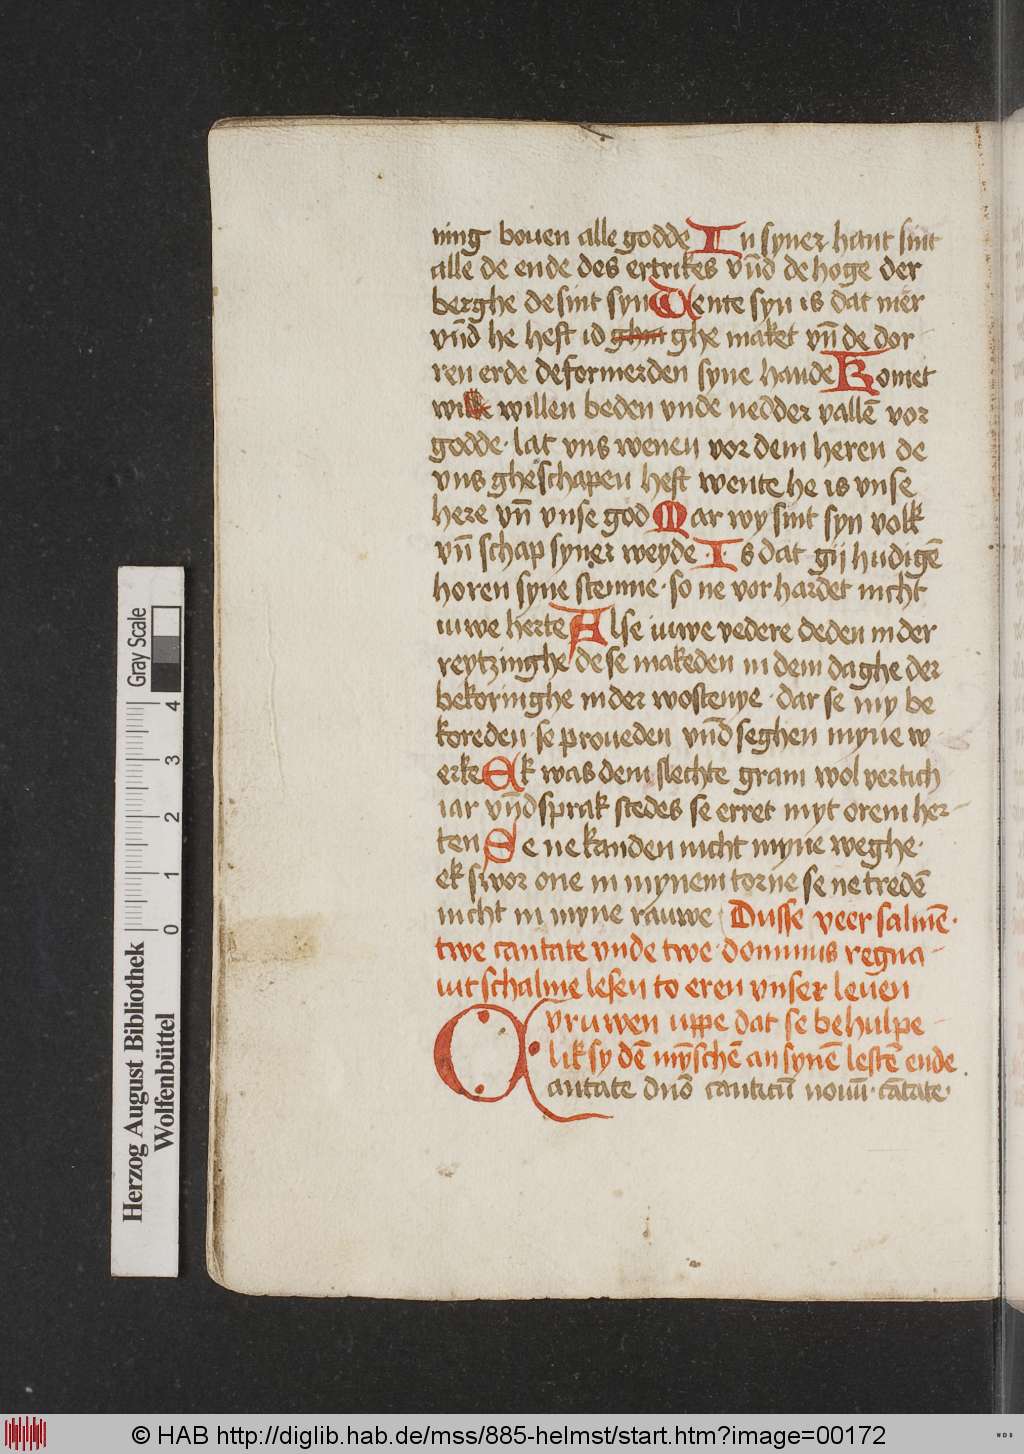 ning boven alle godde In syner hant sint
alle de ende des ertrikes vñd de hoge der
berghe de sint syn Wente syn is dat mer
vñd he heft id ghe maket vñ de dor
ren erde deformerden syne hande Komet
willen beden vnde nedder vallē vor
godde · lat vns wenen vor dem heren de
vns gheschapen heft wente he is vnse
here vñ vnse god Mar wy sint syn volk
vñ schap syner weyde · Is dat gij hudigē
horen syne stemme · so ne vor hardet nicht
iuwe herte Alse iuwe vedere deden in der
reytzinghe de se makeden in dem daghe der
bekoringhe in der wostenye · dar se my be
koreden · se proueden vñd seghen myne w
erke Ek was dem slechte gram wol vertich
iar vñd sprak stedes se erret myt orem her-
ten Se ne kanden nicht myne weghe ·
ek swor one in mynem torne se ne tredē
nicht in myne rauwe Dusse veer salmē ·
twe cantate vnde twe · dominus regna-
uit schalme lesen to eren vnser leuen
vruwen uppe dat se behulpe-
lik sy dē mȳschē an synē lestē ende
Cantate dnō canticū nouū · cātate ·
Gray Scale
0 1 2 3 4
Herzog August Bibliothek
Wolfenbüttel
© HAB http://diglib.hab.de/mss/885-helmst/start.htm?image=00172
WDB